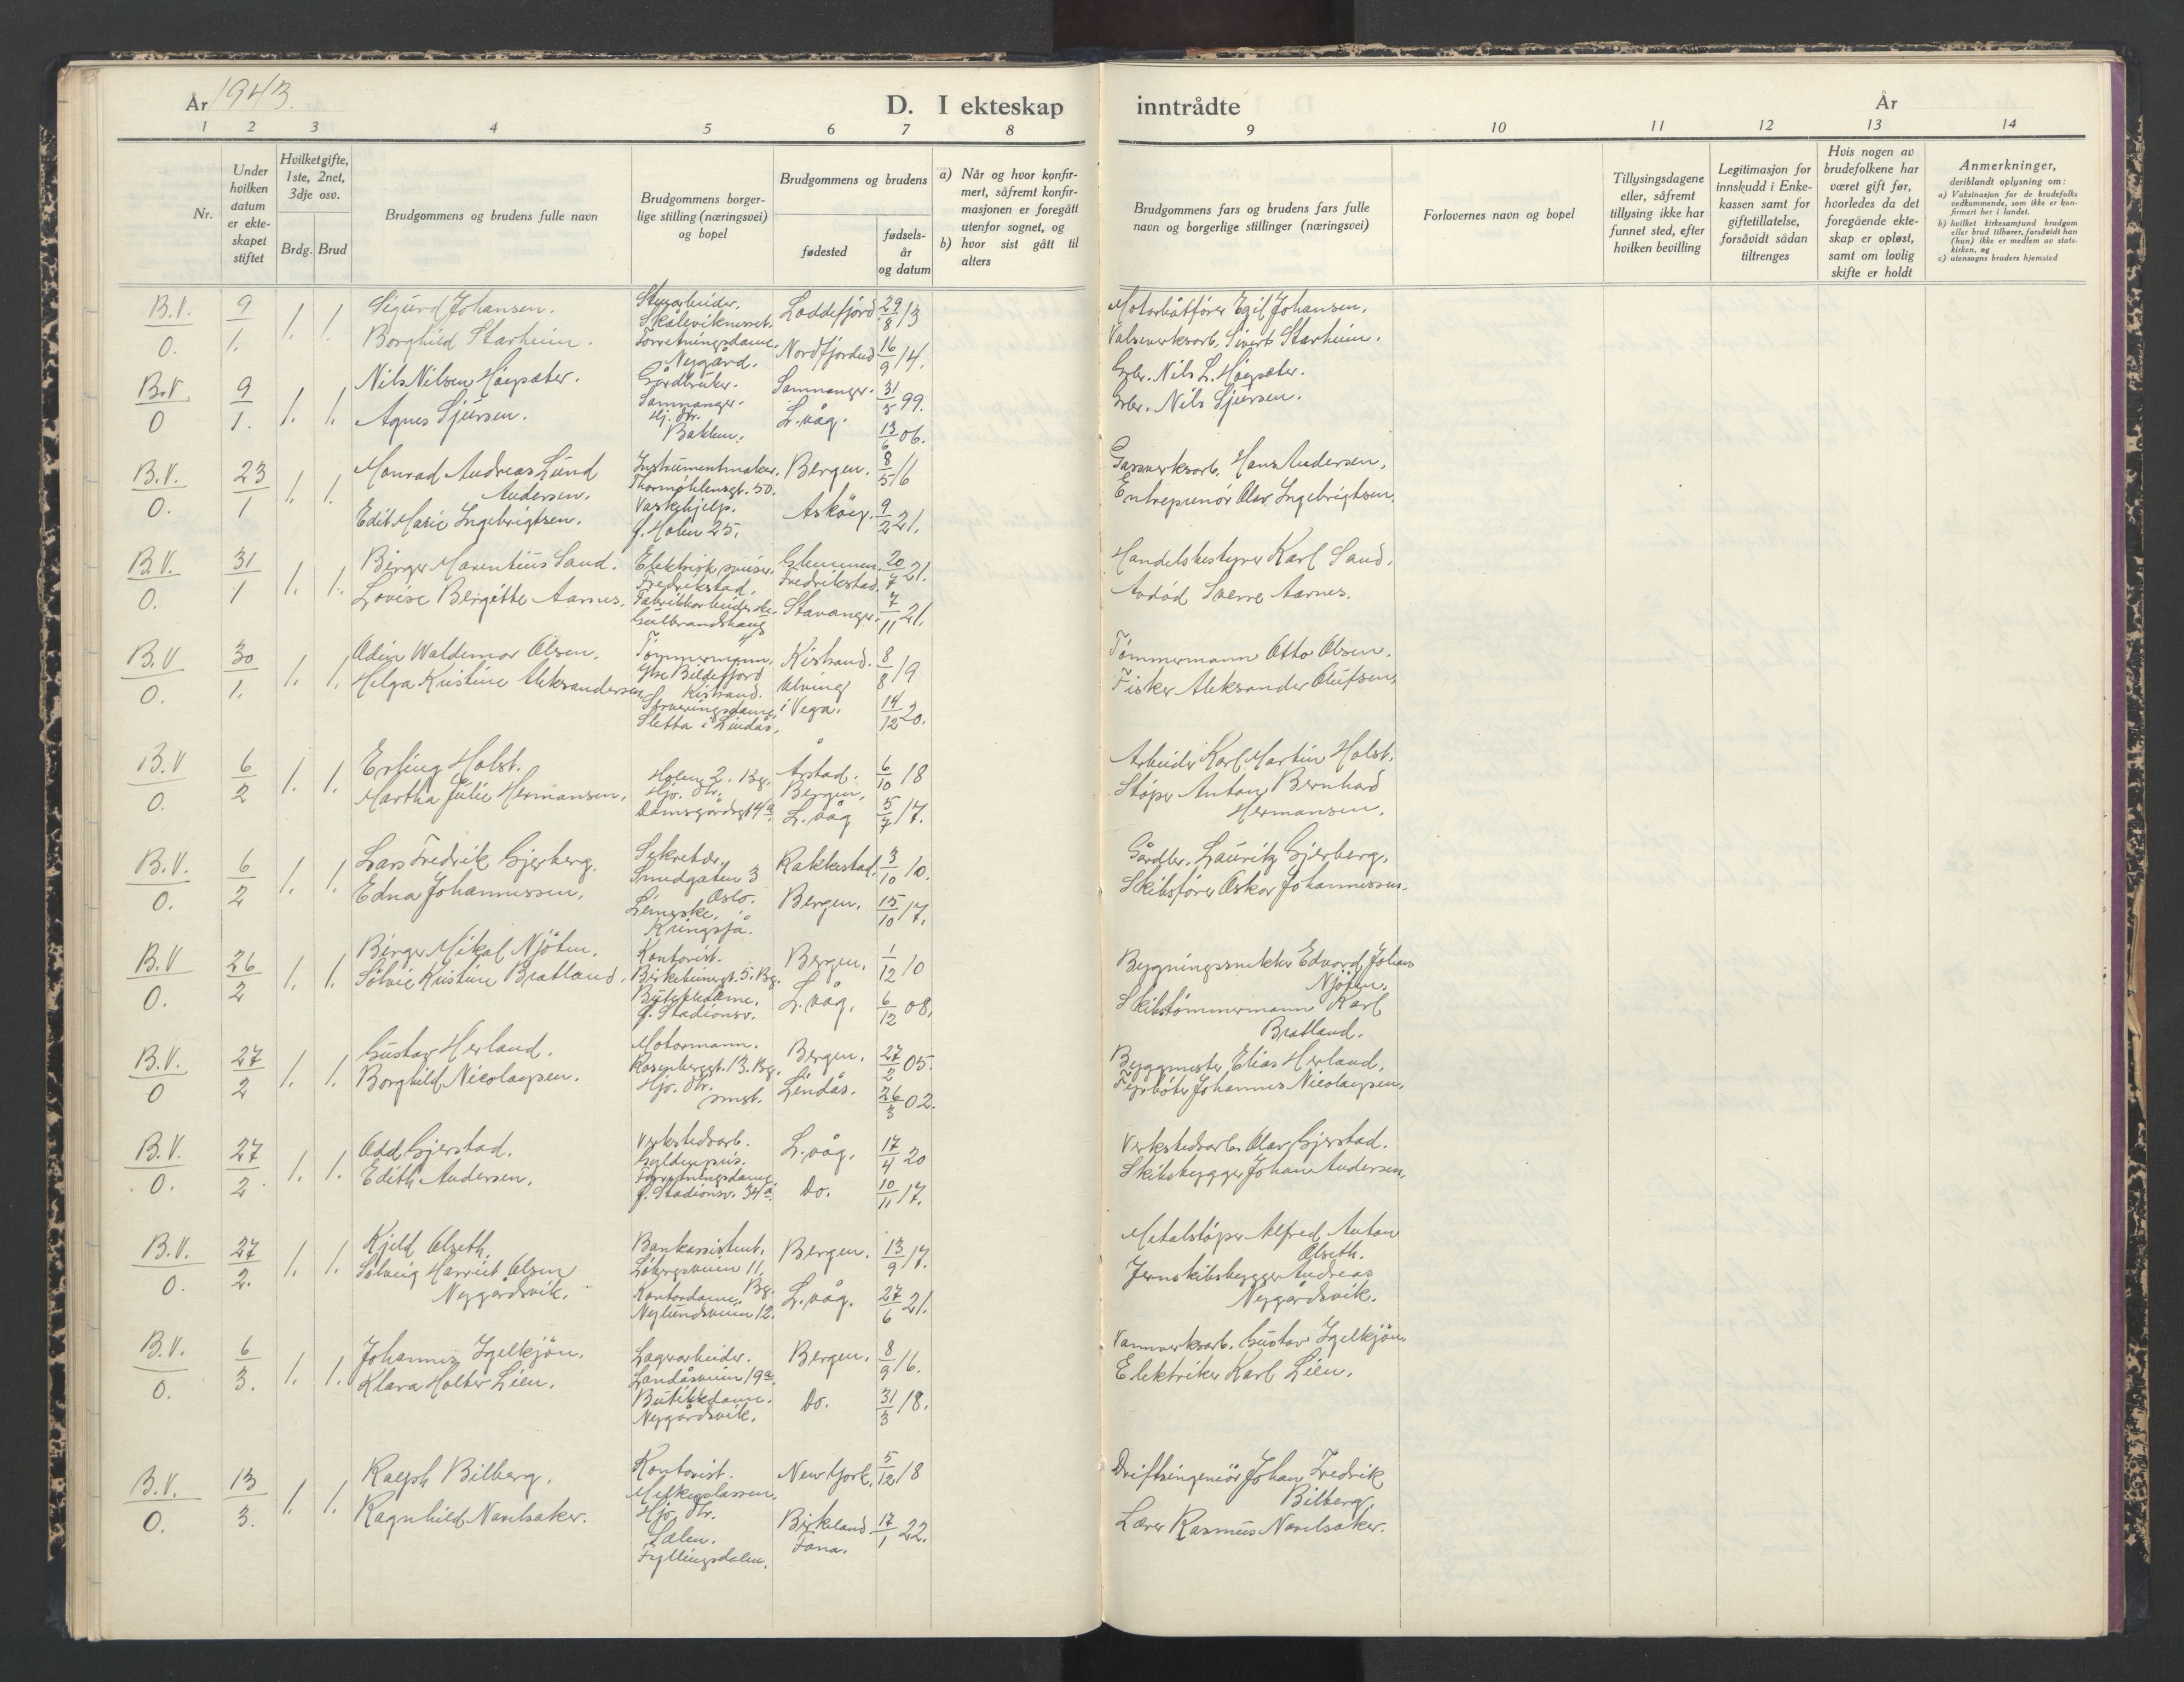 År 1943.
D. I ekteskap inntrådte
År
1 2 3 4 5 6 7 8 9 10 11 12 13 14
Nr.
Under hvilken datum er ekte- skapet stiftet
Hvilket gifte, 1ste, 2net, 3dje osv.
Brdg. Brud
Brudgommens og brudens fulle navn
Brudgommens borger- lige stilling (næringsvei) og bopel
Brudgommens og brudens
fødested
fødsels- år og datum
a) Når og hvor konfir- mert, såfremt konfir- masjonen er foregått utenfor sognet, og
b) hvor sist gått til alters
Brudgommens fars og brudens fars fulle navn og borgerlige stillinger (næringsvei)
Forlovernes navn og bopel
Tillysingsdagene eller, såfremt tillysing ikke har funnet sted, efter hvilken bevilling
Legitimasjon for innskudd i Enke- kassen samt for giftetillatelse, forsåvidt sådan tiltrenges
Hvis nogen av brudefolkene har været gift før, hvorledes da det foregående ekte- skap er opløst, samt om lovlig skifte er holdt
Anmerkninger,
deriblandt oplysning om:
a) Vaksinasjon for de brudefolks vedkommende, som ikke er kon- firmert her i landet.
b) hvilket kirkesamfund brudgom eller brud tilhører, forsåvidt han (hun) ikke er medlem av stats- kirken, og
c) utensogns bruders hjemsted
B.V. 9/1. 1. 1. Sigurd Johansen. Loddefjord 29/8 13 Motorbåtfører Egil Johansen.
O. Borghild Starheim. Forretningsdame, Nygård. Nordfjordeid 16/9 14. Valseverksarb. Sivert Starheim.
B.V. 9/1. 1. 1. Nils Nilsen Høysæter. Gårdbruker. Samnanger. Samnanger. 31/5 99. Gbr. Nils L. Høysæter.
O Agnes Sjursen. Hj. dtr. Bakken. L.våg. 13/6 06. Gbr. Nils Sjursen.
B.V. 23/1 1. 1. Monrad Andreas Lund Andersen. Instrumentmaker. Thormøhlensgt. 50. Bergen. 8/5 16 Gassverksarb. Hans Andersen.
O. Edit Marie Ingebrigtsen. Vaskehjelp. g. Holen 25. Askøy. 9/2 21. Entreprenør Olav Ingebrigtsen.
B.V. 31/1 1. 1. Birger Marentius Sand. Fredrikstad. Glemmen. Fredrikstad. 20/7 21. Handelsbestyrer Karl Sand.
O. Lovise Bergitte Aarnes. Fabrikkarbeiderske. Gulbrandshaug Stavanger. 7/11 21. Avdød Sverre Aarnes.
B.V 30/1. 1. 1. Odin Waldemar Olsen. Tømmermann. Ytre Billefjord Kistrand. Kistrand. 8/8 19 Tømmermann Otto Olsen.
O. Helga Kristine Aleksandersen. Serveringsdame, Sletta i Lindås. Ulvingi Vega. 14/12 20. Fisker Aleksander Olufsen.
B.V 6/2 1. 1. Erling Holst. Holen 2. Bg. Årstad. Bergen. 6/10 18 Arbeider Karl Martin Holst.
O. Martha Julie Hermansen. Hjv. dtr. Damsgårdsgt 4a. L.våg 5/7 17. Støper Anton Bernhard Hermansen.
B.V. 6/2 1. 1. Lars Fredrik Gjerberg. Sekretær. Smedgaten 3 Oslo. Rakkestad. 3/10 10. Gårdbr. Lauritz Gjerberg.
O. Edna Johannessen. Kringsjå. Bergen. 15/10 17. Skibsfører Oskar Johannessen.
B.V 26/2 1. 1. Birger Mikal Njøten. Kontorist. Birkebeinergt. 5. Bg. Bergen. 1/12 10 Bygningssnekker Edvard Johan Njøten.
O. Solvie Kristine Bratland. Butikkdame. g. Stadionsv. L.våg. 6/12 08. Skibstømmermann Karl Bratland.
B.V. 27/2 1. 1. Gustav Herland. Motormann. Rosenberggt. 13. Bg. Bergen. 27/2 05. Byggmester Elias Herland.
O Borghild Nicolaysen. Hjv. dtr. smst. Lindås. 26/3 02. Fyrbøter Johannes Nicolaysen.
B.V. 27/2. 1. 1. Odd Gjerstad. Verkstedsarb. Gyldenpris. L.våg. 17/4 20 Verkstedsarb. Olav Gjerstad.
O. Edith Andersen. Forretningsdame. g. Stadionsv. 34a. Do. 10/11 17. Skibsbygger Johan Andersen.
B.V. 27/2. 1. 1. Kjell Olseth. Bankassistent. Løbergsveien 11. Bg. Bergen. 13/9 17. Metalstøper Alfred Anton Olseth.
O. Solveig Harriet Olsen Nygårdsvik. Kontordame. Nylundsveien 12. L.våg. 27/6 21. Jernskibsbygger Andreas Nygårdsvik.
B.V. 6/3. 1. 1. Johannes Igelkjøn. Lagerarbeider. Landåsveien 19a. Bergen. 8/9 16. Vannverksarb. Gustav Igelkjøn.
O. Klara Holter Lien. Butikkdame. Nygårdsvik. Do. 31/3 18. Elektriker Karl Lien.
B.V. 13/3. 1. 1. Ralph Bilberg. Kontorist. Melkeplassen. New York. 5/12 18 Driftsingeniør Johan Fredrik Bilberg.
O. Ragnhild Navelsaker. Hjv. dtr. Sælen. Fyllingsdalen. Birkeland Fana. 17/1 22. Lærer Rasmus Navelsaker.